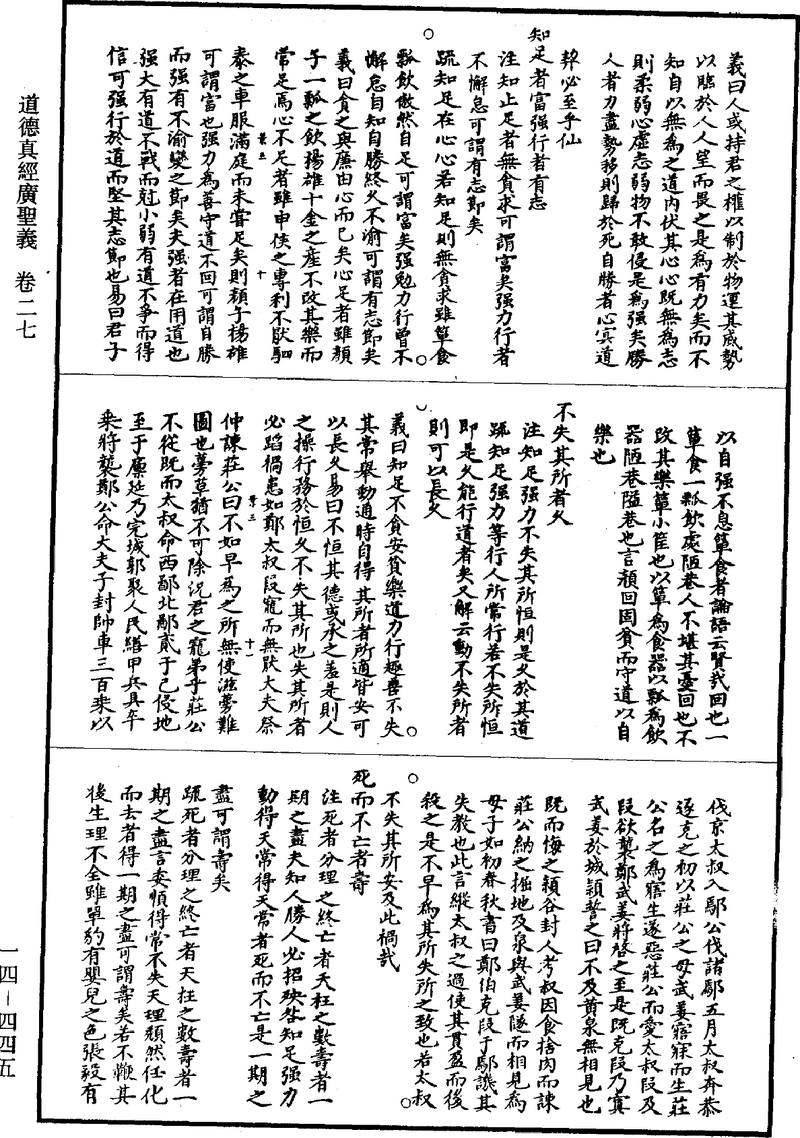 道德真經廣聖義　卷二七
一四—四四五
義曰人或持君之權以制於物運其威勢
以臨於人人望而畏之是為有力矣而不
知自以無為之道內伏其心心既無為志
則柔弱心虛志弱物不敢侵是為強矣勝
人者力盡勢移則歸於死自勝者心冥道
契必至乎仙
知足者富強行者有志
注知止足者無貪求可謂富矣強力行者
不懈息可謂有志節矣
疏知足在心心若知足則無貪求雖簞食
瓢飲傲然自足可謂富矣強勉力行曾不
懈怠自知自勝終久不渝可謂有志節矣
義曰貪之與廉由心而已矣心足者雖顏
子一瓢之飲揚雄十金之產不改其樂而
常足焉心不足者雖申侯之專利不厭駟
泰之車服滿庭而未嘗足矣則顏子楊雄
可謂富也強力為善守道不回可謂自勝
而強有不渝變之節矣夫強者在用道也
強大有道不戰而尅小弱有道不爭而得
信可強行於道而堅其志節也易曰君子
以自強不息簞食者論語云賢哉回也一
簞食一瓢飲處陋巷人不堪其憂回也不
改其樂簞小筐也以簞為食器以瓢為飲
器陋巷隘巷也言顏回固貧而守道以自
樂也
不失其所者久
注知足強力不失其所恒則是久於其道
疏知足強力等行人所常行若不失所恒
即是久能行道者矣又解云動不失所者
則可以長久
義曰知足不貪安貧樂道力行趣善不失
其常舉動適時自得其所者所適皆安可
以長久易曰不恒其德或承之羞是則人
之操行務於恒久不失其所也失其所者
必蹈禍患如鄭太叔段寵而無厭大夫祭
仲諫莊公曰不如早為之所無使滋蔓難
圖也蔓草猶不可除況君之寵弟乎莊公
不從既而太叔命西鄙北鄙貳于己侵地
至于廩延乃完城郭聚人民繕甲兵具卒
乘將襲鄭公命大夫子封帥車三百乘以
伐京太叔入鄢公伐諸鄢五月太叔奔恭
遂克之初以莊公之母武姜寤寐而生莊
公名之為寤生遂惡莊公而愛太叔段及
段欲襲鄭武姜將啓之至是既克段乃寘
武姜於城潁誓之曰不及黃泉無相見也
既而悔之潁谷封人考叔因食捨肉而諫
莊公納之掘地及泉與武姜隧而相見為
母子如初春秋書曰鄭伯克段于鄢譏其
失教也此言縱太叔之過使其貫盈而後
殺之是不早為其所失所之致也若太叔
不失其所安及此禍哉
死而不亡者壽
注死者分理之終亡者夭枉之數壽者一
期之盡夫知人勝人必招殃咎知足強力
動得天常得天常者死而不亡是一期之
盡可謂壽矣
疏死者分理之終亡者夭枉之數壽者一
期之盡言委順得常不失天理頹然任化
而去者得一期之盡可謂壽矣若不鞭其
後生理不全雖單豹有嬰兒之色張毅有